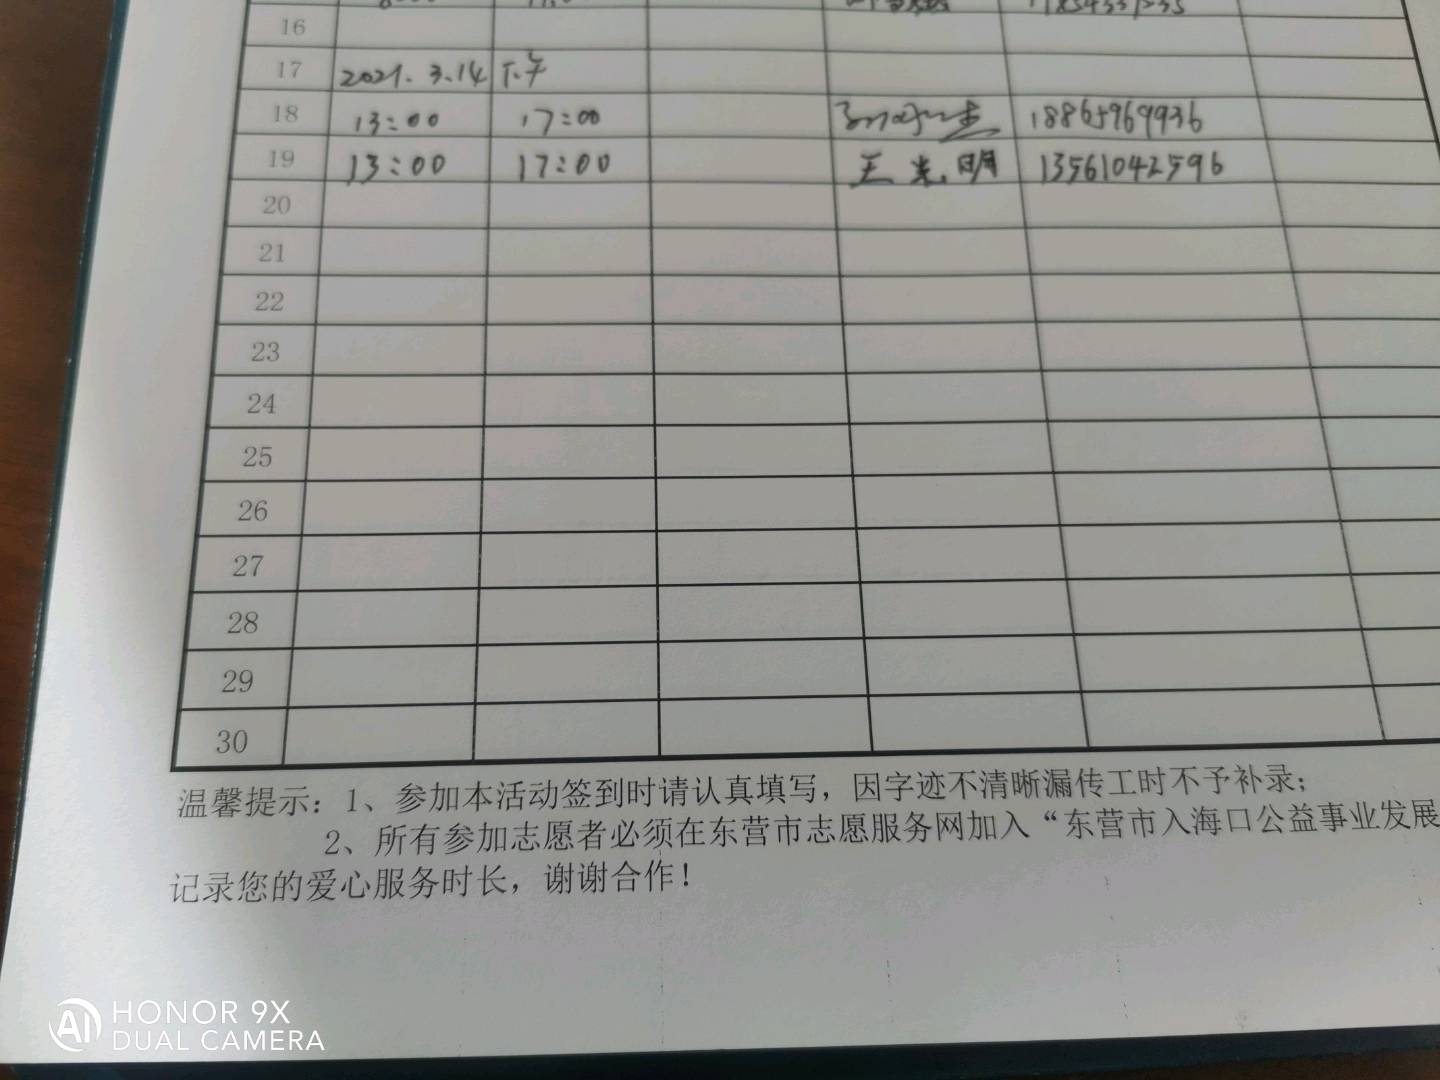 16
17 2021.3.14 下午
18 13:00 17:00 18865969936
19 13:00 17:00 王光明 13561042596
20
21
22
23
24
25
26
27
28
29
30
温馨提示：1、参加本活动签到时请认真填写，因字迹不清晰漏传工时不予补录；
2、所有参加志愿者必须在东营市志愿服务网加入“东营市入海口公益事业发展
记录您的爱心服务时长，谢谢合作！
HONOR 9X
DUAL CAMERA